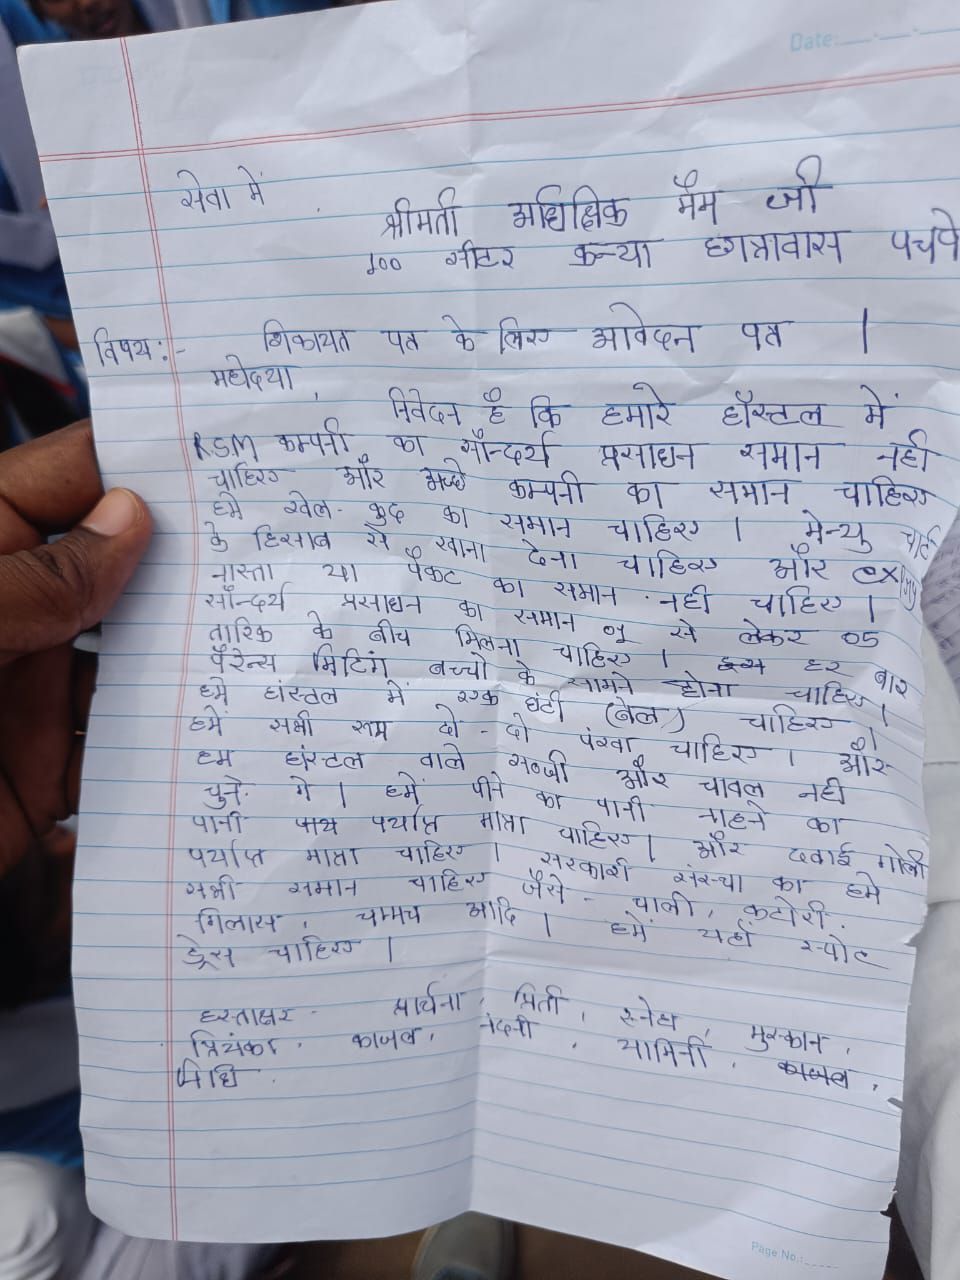 Date:
सेवा में,
श्रीमती अधिक्षिक मैम जी
100 सीटर कन्या छात्रावास पचपे
विषय:- शिकायत पत्र के लिए आवेदन पत्र |
महोदया,
निवेदन है कि हमारे हॉस्टल में
R.S.M कम्पनी का सौन्दर्य प्रसाधन समान नही
चाहिए और अच्छे कम्पनी का समान चाहिए
हमे खेल-कुद का समान चाहिए | मेन्यु चार्ट
के हिसाब से खाना देना चाहिए और ex
नास्ता या पैकट का समान नही चाहिए |
सौन्दर्य प्रसाधन का समान 01 से लेकर 05
तारिक के बीच मिलना चाहिए | हर बार
पैरेन्स मिटिंग बच्चो के सामने होना चाहिए |
हमे हांस्टल में एक घंटी (बेल) चाहिए |
हमें सभी रूम दो-दो पंखा चाहिए | और
हम हांस्टल वाले सब्जी और चावल नही
चुने गे | हमें पीने का पानी नाहने का
पानी पर्याप्त मात्रा चाहिए | और दवाई गोली
पर्याप्त मात्रा चाहिए | सरकारी संस्था का हमे
सभी समान चाहिए जैसे - थाली, कटोरी,
गिलास, चम्मच आदि | हमें यहाँ स्पोट
ड्रेस चाहिए |
हस्ताक्षर - प्रार्थना, प्रिती, स्नेहा, मुस्कान,
प्रियंका, काजल, नंदनी, यामिनी, काजल,
निधि
Page No.: